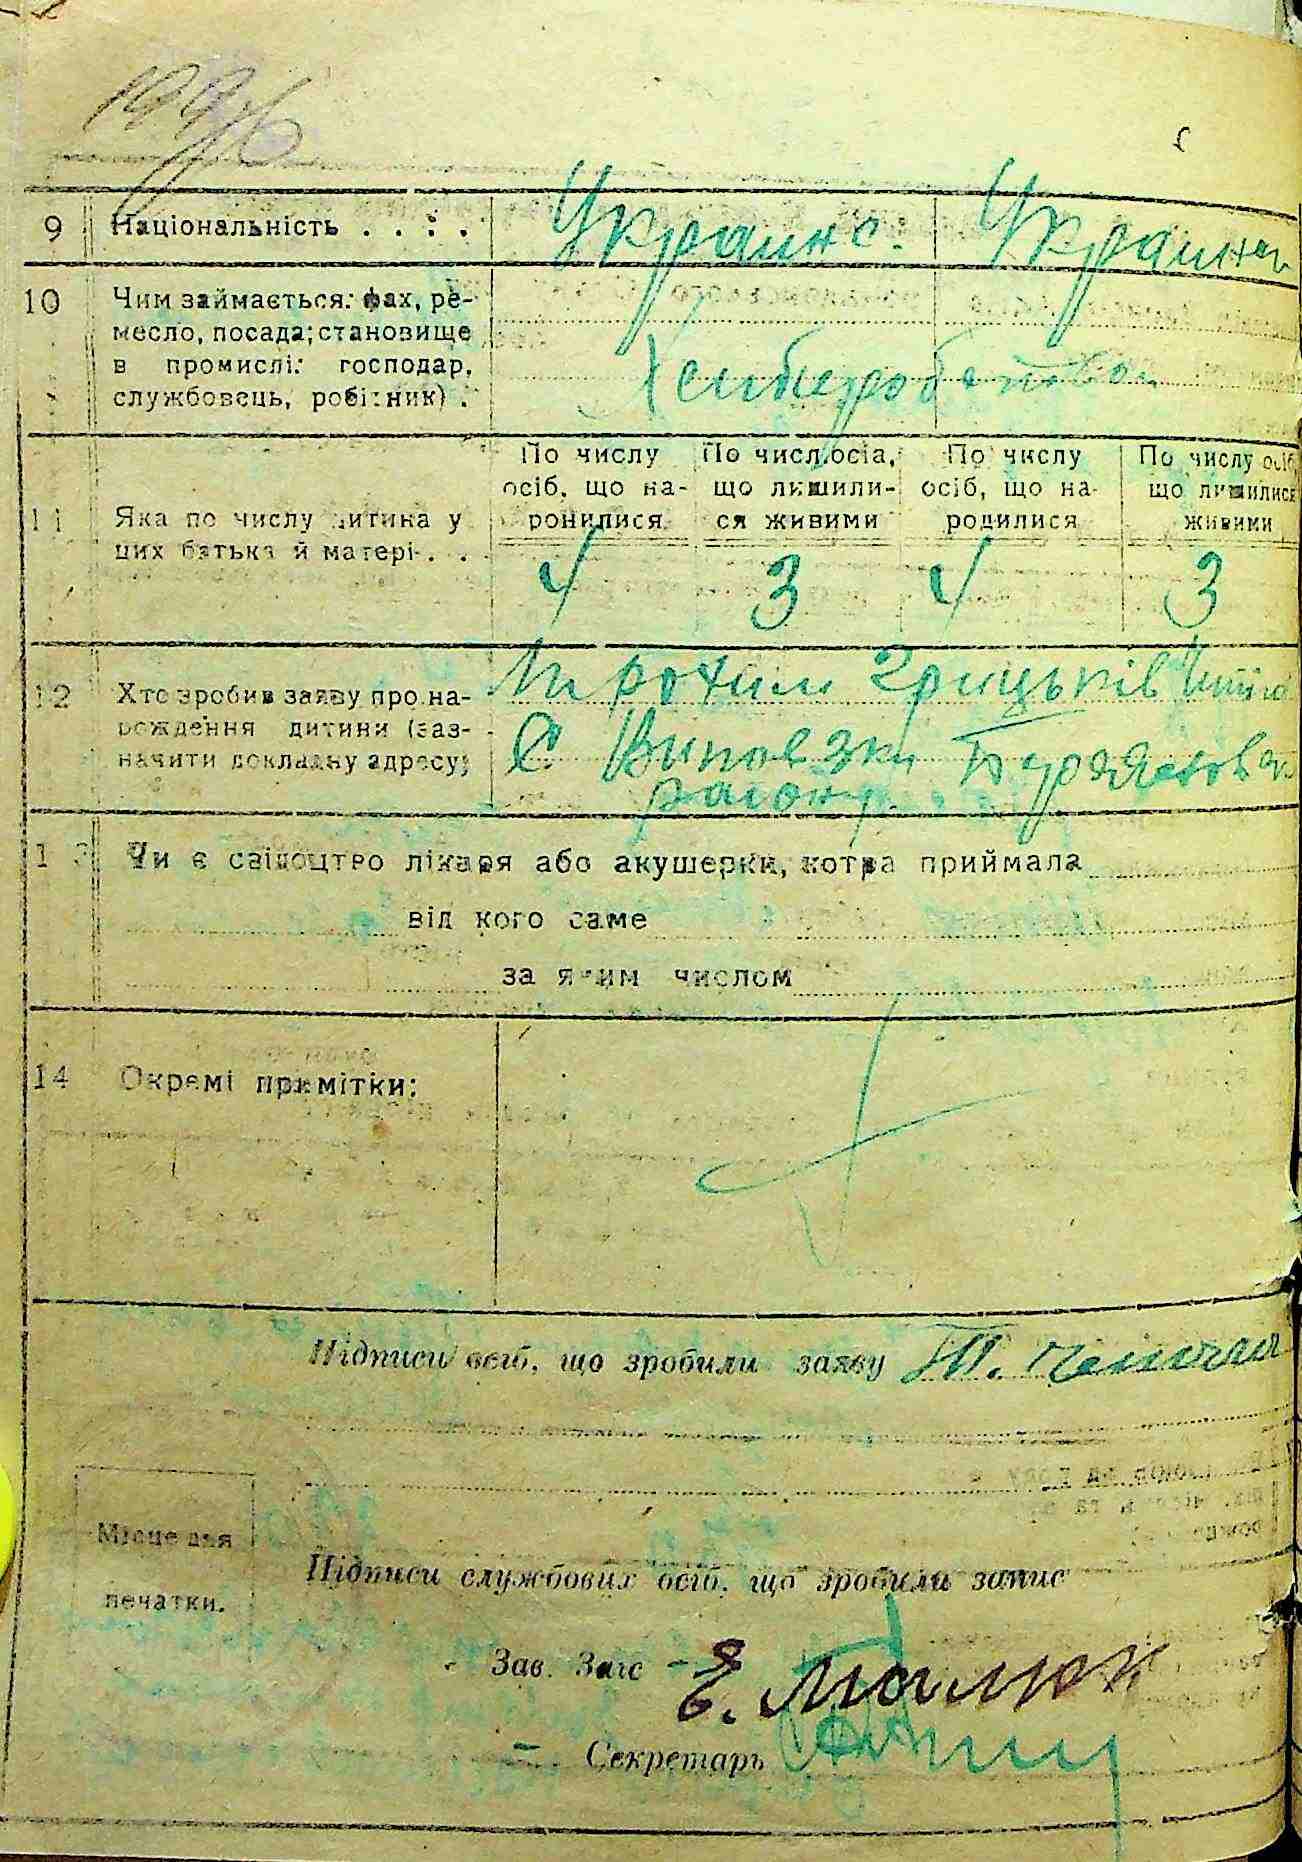 9 Національність . . . . Украинс. Украин
10 Чим займається: фах, ре-
месло, посада; становище
в промислі: господар,
службовець, робітник) . Хлиборобство
По числу осіб, що на-ронилися По числ.осіа, що лишили-ся живими По числу осіб, що на-родилися По числу осіб що лишилися живими
11 Яка по числу дитина у
цих батька й матері . . 4 3 4 3
12 Хто зробив заяву про на- Трохим Грицьків
рождення дитини (заз- С Виповзки
начити докладну адресу; району.
13 Чи є свідоцтво лікаря або акушерки, котра приймала
від кого саме
за яким числом
14 Окремі примітки:
Підписи осіб, що зробили заяву Т.
Місце для
печатки.
Підписи службових осіб, що зробили запис
Зав. Загс Е. Малюк
Секретарь